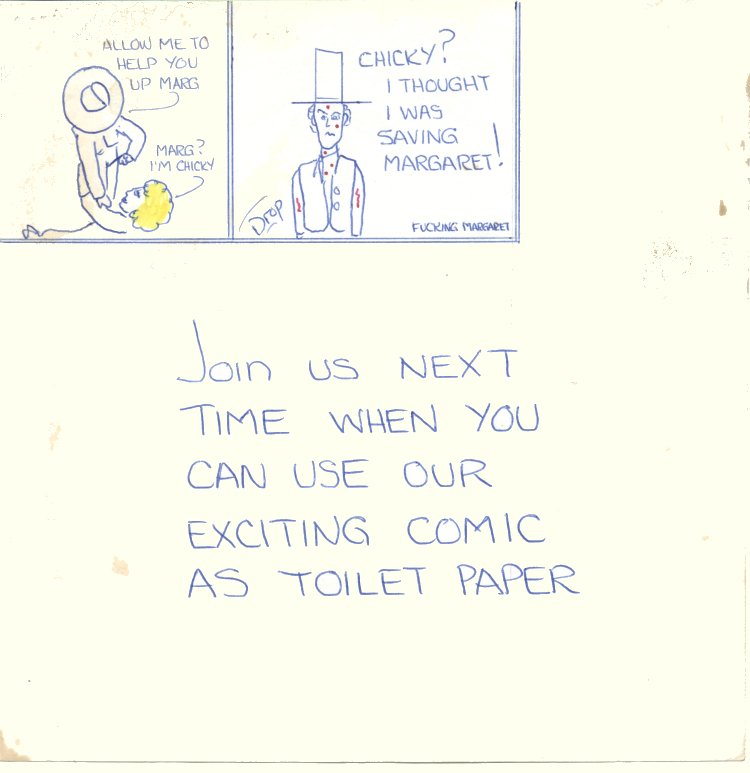 ALLOW ME TO
HELP YOU
UP MARG
MARG?
I'M CHICKY
CHICKY?
I THOUGHT
I WAS
SAVING
MARGARET!
Drop
FUCKING MARGARET
Join us NEXT
TIME WHEN YOU
CAN USE OUR
EXCITING COMIC
AS TOILET PAPER